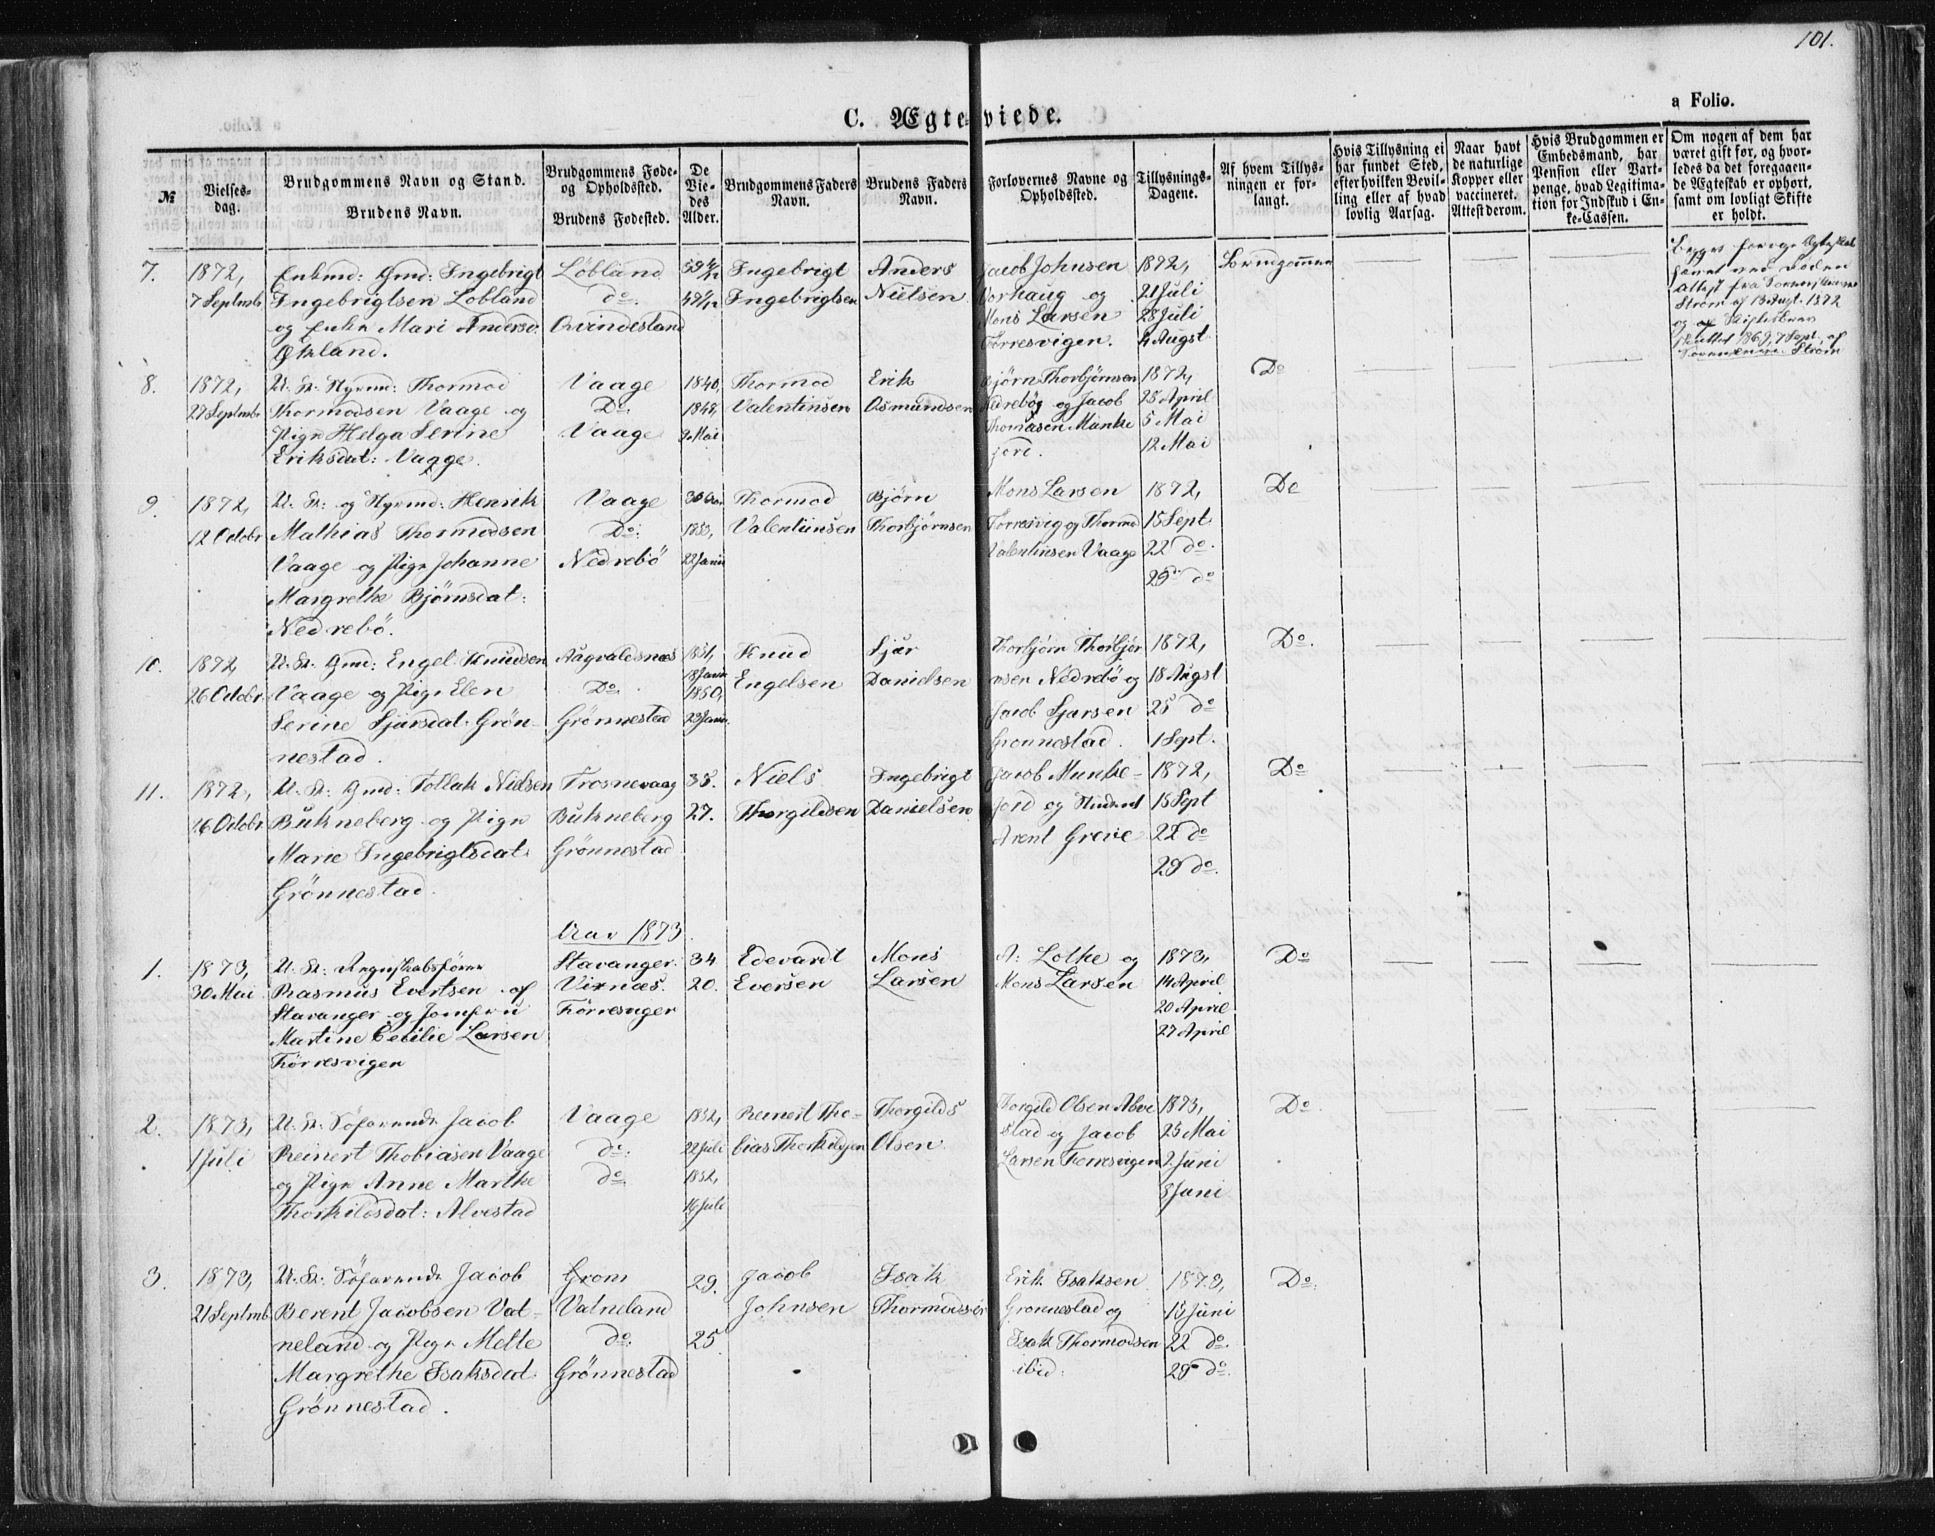 101.
a Folio.
C. Ægteviede.
№
Vielses-dag.
Brudgommens Navn og Stand.
Brudens Navn.
Brudgommens Føde- og Opholdssted.
Brudens Fødested.
De Viedes Alder.
Brudgommens Faders Navn.
Brudens Faders Navn.
Forlovernes Navne og Opholdssted.
Tillysnings-Dagene.
Af hvem Tillysningen er forlangt.
Hvis Tillysning ei har fundet Sted, efter hvilken Bevilling eller af hvad lovlig Aarsag.
Naar havt de naturlige Kopper eller vaccineret. Attest derom.
Hvis Brudgommen er Embedsmand, har Pension eller Vartpenge, hvad Legitimation for Indskud i Enke-Cassen.
Om nogen af dem har været gift før, og hvorledes da det foregaaende Ægteskab er ophørt, samt om lovligt Skifte er holdt.
7. 1872, Enkmd: Gmd: Ingebrigt Løbland Ingebrigt Anders Jacob Johnsen 1872, Brudgommen
7 Septmb. Ingebrigtsen Løbland do. Ingebrigtsen Nielsen Vorhaug og 21 Juli
og Enke Mari Andersd. Qvindesland Mons Larsen 28 Juli
Økland. Førresvigen. 4 Augst.
8. 1872, U. St. Styrmd: Thormod Vaage 1840, Thormod Erik Bjørn Thorbjørnsen 1872, Do
27 Septmbr Thormodsen Vaage og Do: 1848, Valentinsen Osmundsen Nedrebø og Jacob 28 April
Pige Helga Serine Vaage 2 Mai Thomasen Munke 5 Mai
Eriksdat: Vaage. jord. 12 Mai
9. 1872, U. St: og Styrmd: Henrik Vaage 30 Aar Thormod Bjørn Mons Larsen 1872, Do
12 Octobr Mathias Thormodsen Do: 1853, Valentinsen Thorbjørnsen Førresvig og Thormod 15 Sept
Vaage og Pige Johanne Nedrebö 22 Janu Valentinsen Vaage 22 do.
Margrethe Bjørnsdat: 29 do
Nedrebö.
10. 1872 U. St. Gmd: Engel Knudsen Augvaldsnæs 1851, Knud Sjur Thorbjørn Thorbjør 1872, Do.
26 Octobr. Vaage og Pige Elen Do. 18 Janu 1850, Engelsen Danielsen nsen Nedrebö og 18 Augst
Serine Sjursdat. Grön- Grönnestad 23 Janu. Jacob Sjursen 25 do
nestad. Grønnestad. 1 Sept.
11. 1872, U. St. Gmd: Tollak Nielsen Frosnevaag 38. Niels Ingebrigt Jacob Munke- 1872, Do
26 Octobr Bukneberg og Pige Bukneberg 27. Thorgildsen Danielsen jord og Student 15 Sept
Marie Ingebrigtsdat: Grönnestad Arent Greve 22 do
Grönnestad. 29 do.
Aar 1873.
1. 1873, U. St: Regnskabsfører Stavanger. 34 Edevardt Mons A: Lothe og 1873, Do
30 Mai. Rasmus Evertsen af Vixnæs. 20. Eversen Larsen Mons Larsen 14 April
Stavanger og Jomfru 20 April
Martine Cecilie Larsen 27 April
Førresvigen
2. 1873, U. St: Söfarende Jacob Vaage 1852, Reinert Tho- Thorgilds Thorgild Olsen Alve 1873, Do
1 Juli Reinert Thobiasen Vaage do: 22 Juli bias Thorkildsen Olsen. stad og Jacob 25 Mai
og Pige Anne Marthe do 1852, Larsen Førresvigen 2 Juni
Thorkildsdat: Alvestad 16 Juli 8 Juni
3. 1873, U. St. Söfarende Jacob 29. Jacob Isak Erik Isaksen 1873, Do:
21 Septmb. Berent Jacobsen Vat- Vatneland Johnsen Thormodsen Grønnestad og 15 Juni
neland og Pige Mette do: 25 Isak Thormodsen 22 do.
Margrethe Isaksdat. Grönnestad ibid: 29 do.
Grönnestad.